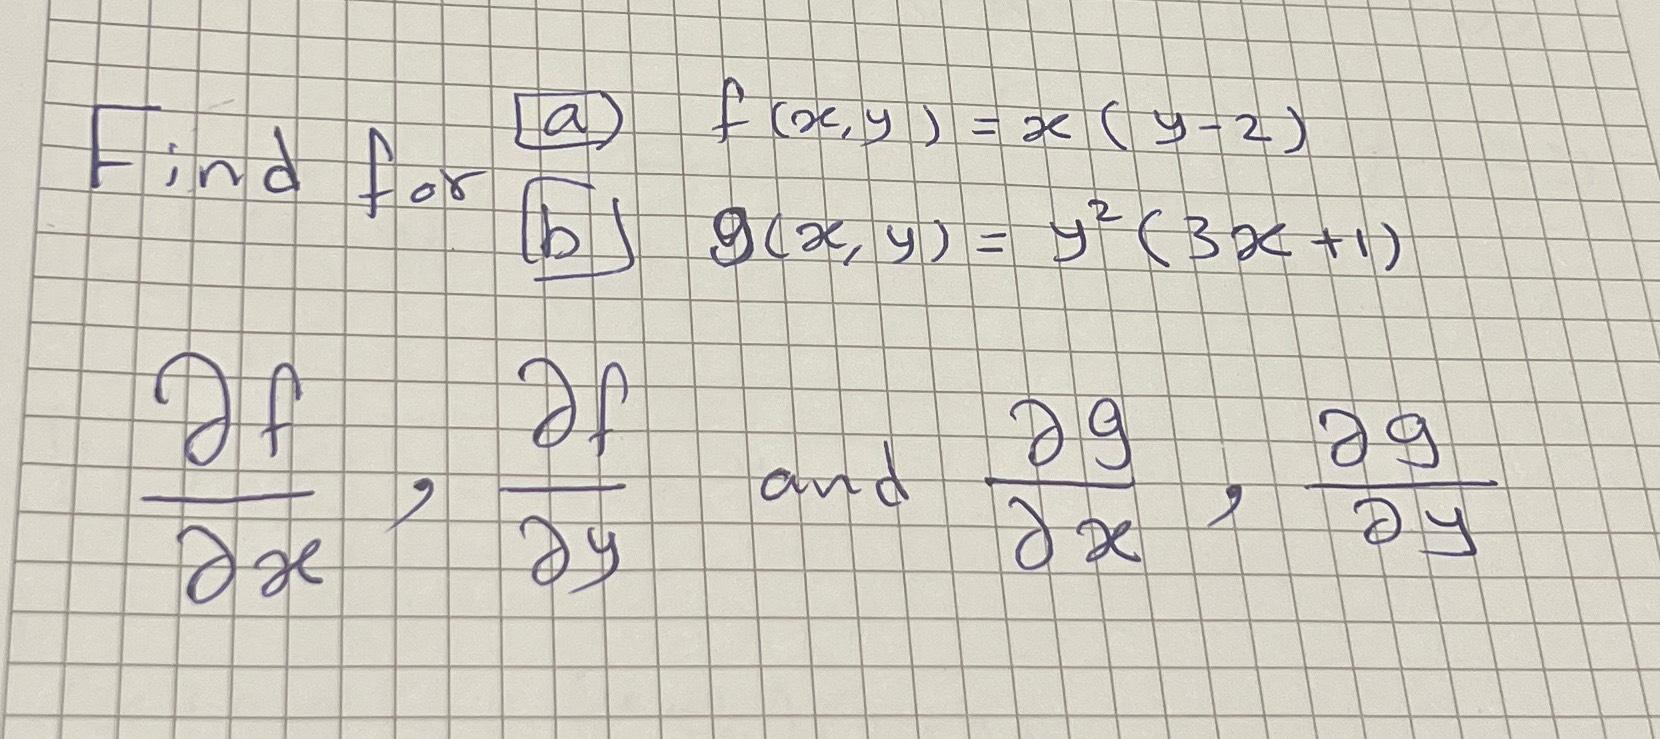 Find for [a) f(x,y) = x(y-2)
[b] g(x,y) = y²(3x+1)
∂f/∂x , ∂f/∂y and ∂g/∂x , ∂g/∂y